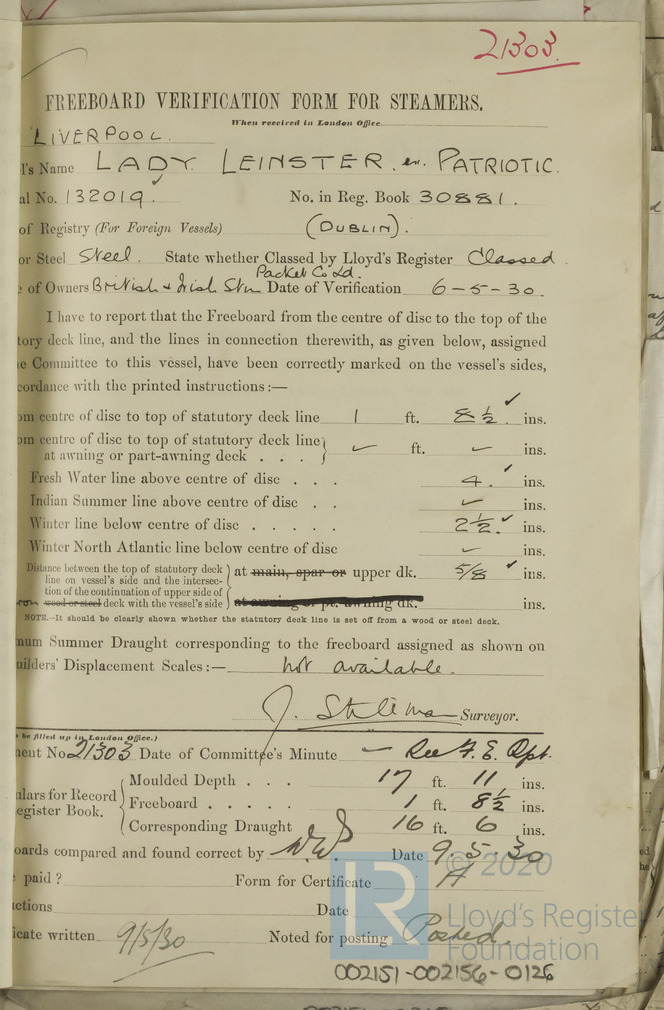 21303
FREEBOARD VERIFICATION FORM FOR STEAMERS.
When received in London Office
LIVERPOOL.
l's Name LADY LEINSTER. ex. PATRIOTIC.
al No. 132019. No. in Reg. Book 30881.
of Registry (For Foreign Vessels) (DUBLIN).
or Steel Steel. State whether Classed by Lloyd's Register Classed.
Packet Co Ld.
e of Owners British & Irish Stm Date of Verification 6-5-30.
I have to report that the Freeboard from the centre of disc to the top of the
tory deck line, and the lines in connection therewith, as given below, assigned
e Committee to this vessel, have been correctly marked on the vessel's sides,
cordance with the printed instructions:—
om centre of disc to top of statutory deck line 1 ft. 8 ½. ins.
om centre of disc to top of statutory deck line
at awning or part-awning deck . . . ft. ins.
Fresh Water line above centre of disc . . . 4. ins.
Indian Summer line above centre of disc . . ins.
Winter line below centre of disc . . . . . 2½. ins.
Winter North Atlantic line below centre of disc ins.
Distance between the top of statutory deck
line on vessel's side and the intersec-
tion of the continuation of upper side of
wood or steel deck with the vessel's side
at main, spar or upper dk. 5/8 ins.
at awning or pt. awning dk. ins.
NOTE.—It should be clearly shown whether the statutory deck line is set off from a wood or steel deck.
mum Summer Draught corresponding to the freeboard assigned as shown on
uilders' Displacement Scales:— not available.
J. Surveyor.
be filled up in London Office.)
ment No. 21303 Date of Committee's Minute — See F. E. Rpt.
ulars for Record
egister Book.
Moulded Depth . . . 17 ft. 11 ins.
Freeboard . . . . . 1 ft. 8½ ins.
Corresponding Draught 16 ft. 6 ins.
oards compared and found correct by Date 9.5.30
paid ? Form for Certificate A
ctions Date
icate written 9/5/30 Noted for posting Posted.
© 2020
Lloyd's Register
Foundation
002151-002156-0126